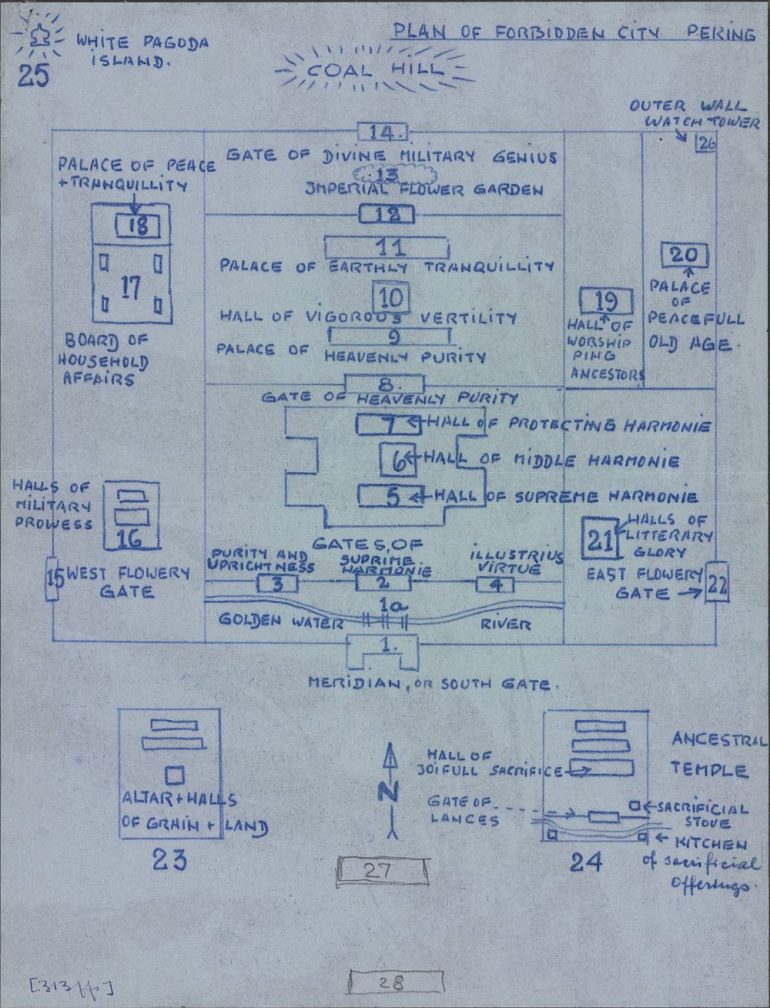 PLAN OF FORBIDDEN CITY PEKING
WHITE PAGODA
ISLAND.
25
COAL HILL
OUTER WALL
WATCH TOWER
26
14.
GATE OF DIVINE MILITARY GENIUS
13
IMPERIAL FLOWER GARDEN
12
PALACE OF PEACE
+ TRANQUILLITY
18
17
BOARD OF
HOUSEHOLD
AFFAIRS
11
PALACE OF EARTHLY TRANQUILLITY
10
HALL OF VIGOROUS VERTILITY
9
PALACE OF HEAVENLY PURITY
8.
GATE OF HEAVENLY PURITY
20
PALACE
OF
PEACEFULL
OLD AGE.
19
HALL OF
WORSHIP
PING
ANCESTORS
7 HALL OF PROTECTING HARMONIE
6 HALL OF MIDDLE HARMONIE
5 HALL OF SUPREME HARMONIE
HALLS OF
MILITARY
PROWESS
16
15 WEST FLOWERY
GATE
21
HALLS OF
LITTERARY
GLORY
EAST FLOWERY
GATE
22
GATES, OF
PURITY AND
UPRIGHTNESS
3
SUPRIME
HARMONIE
2
ILLUSTRIUS
VIRTUE
4
1a
GOLDEN WATER RIVER
1.
MERIDIAN, OR SOUTH GATE.
ALTAR + HALLS
OF GRAIN + LAND
23
N
27
28
HALL OF
JOIFULL SACRIFICE
GATE OF
LANCES
ANCESTRAL
TEMPLE
SACRIFICIAL
STOVE
KITCHEN
of sacrificial
offerings.
24
[313pp]